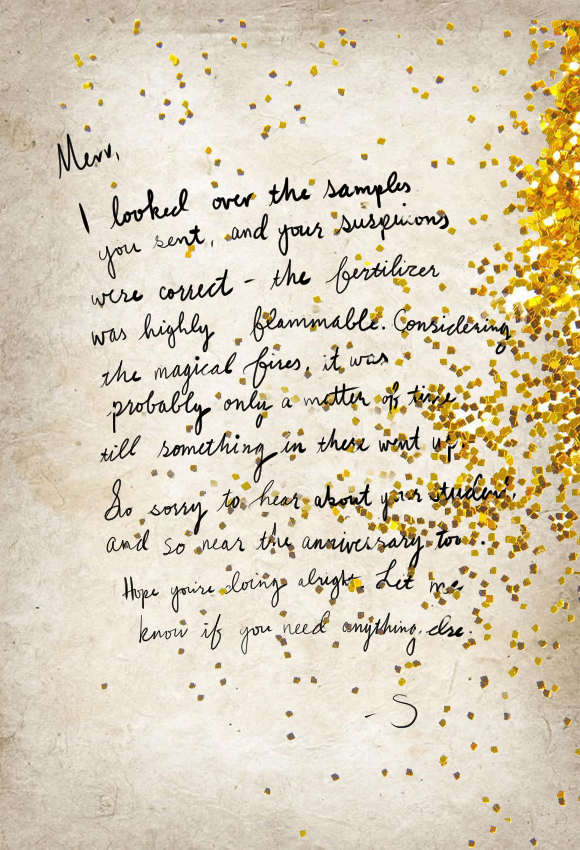 Merr,
I looked over the samples
you sent, and your suspicions
were correct - the fertilizer
was highly flammable. Considering
the magical fires, it was
probably only a matter of time
till something in there went up.
So sorry to hear about your student,
and so near the anniversary too.
Hope you're doing alright. Let me
know if you need anything else.
- S